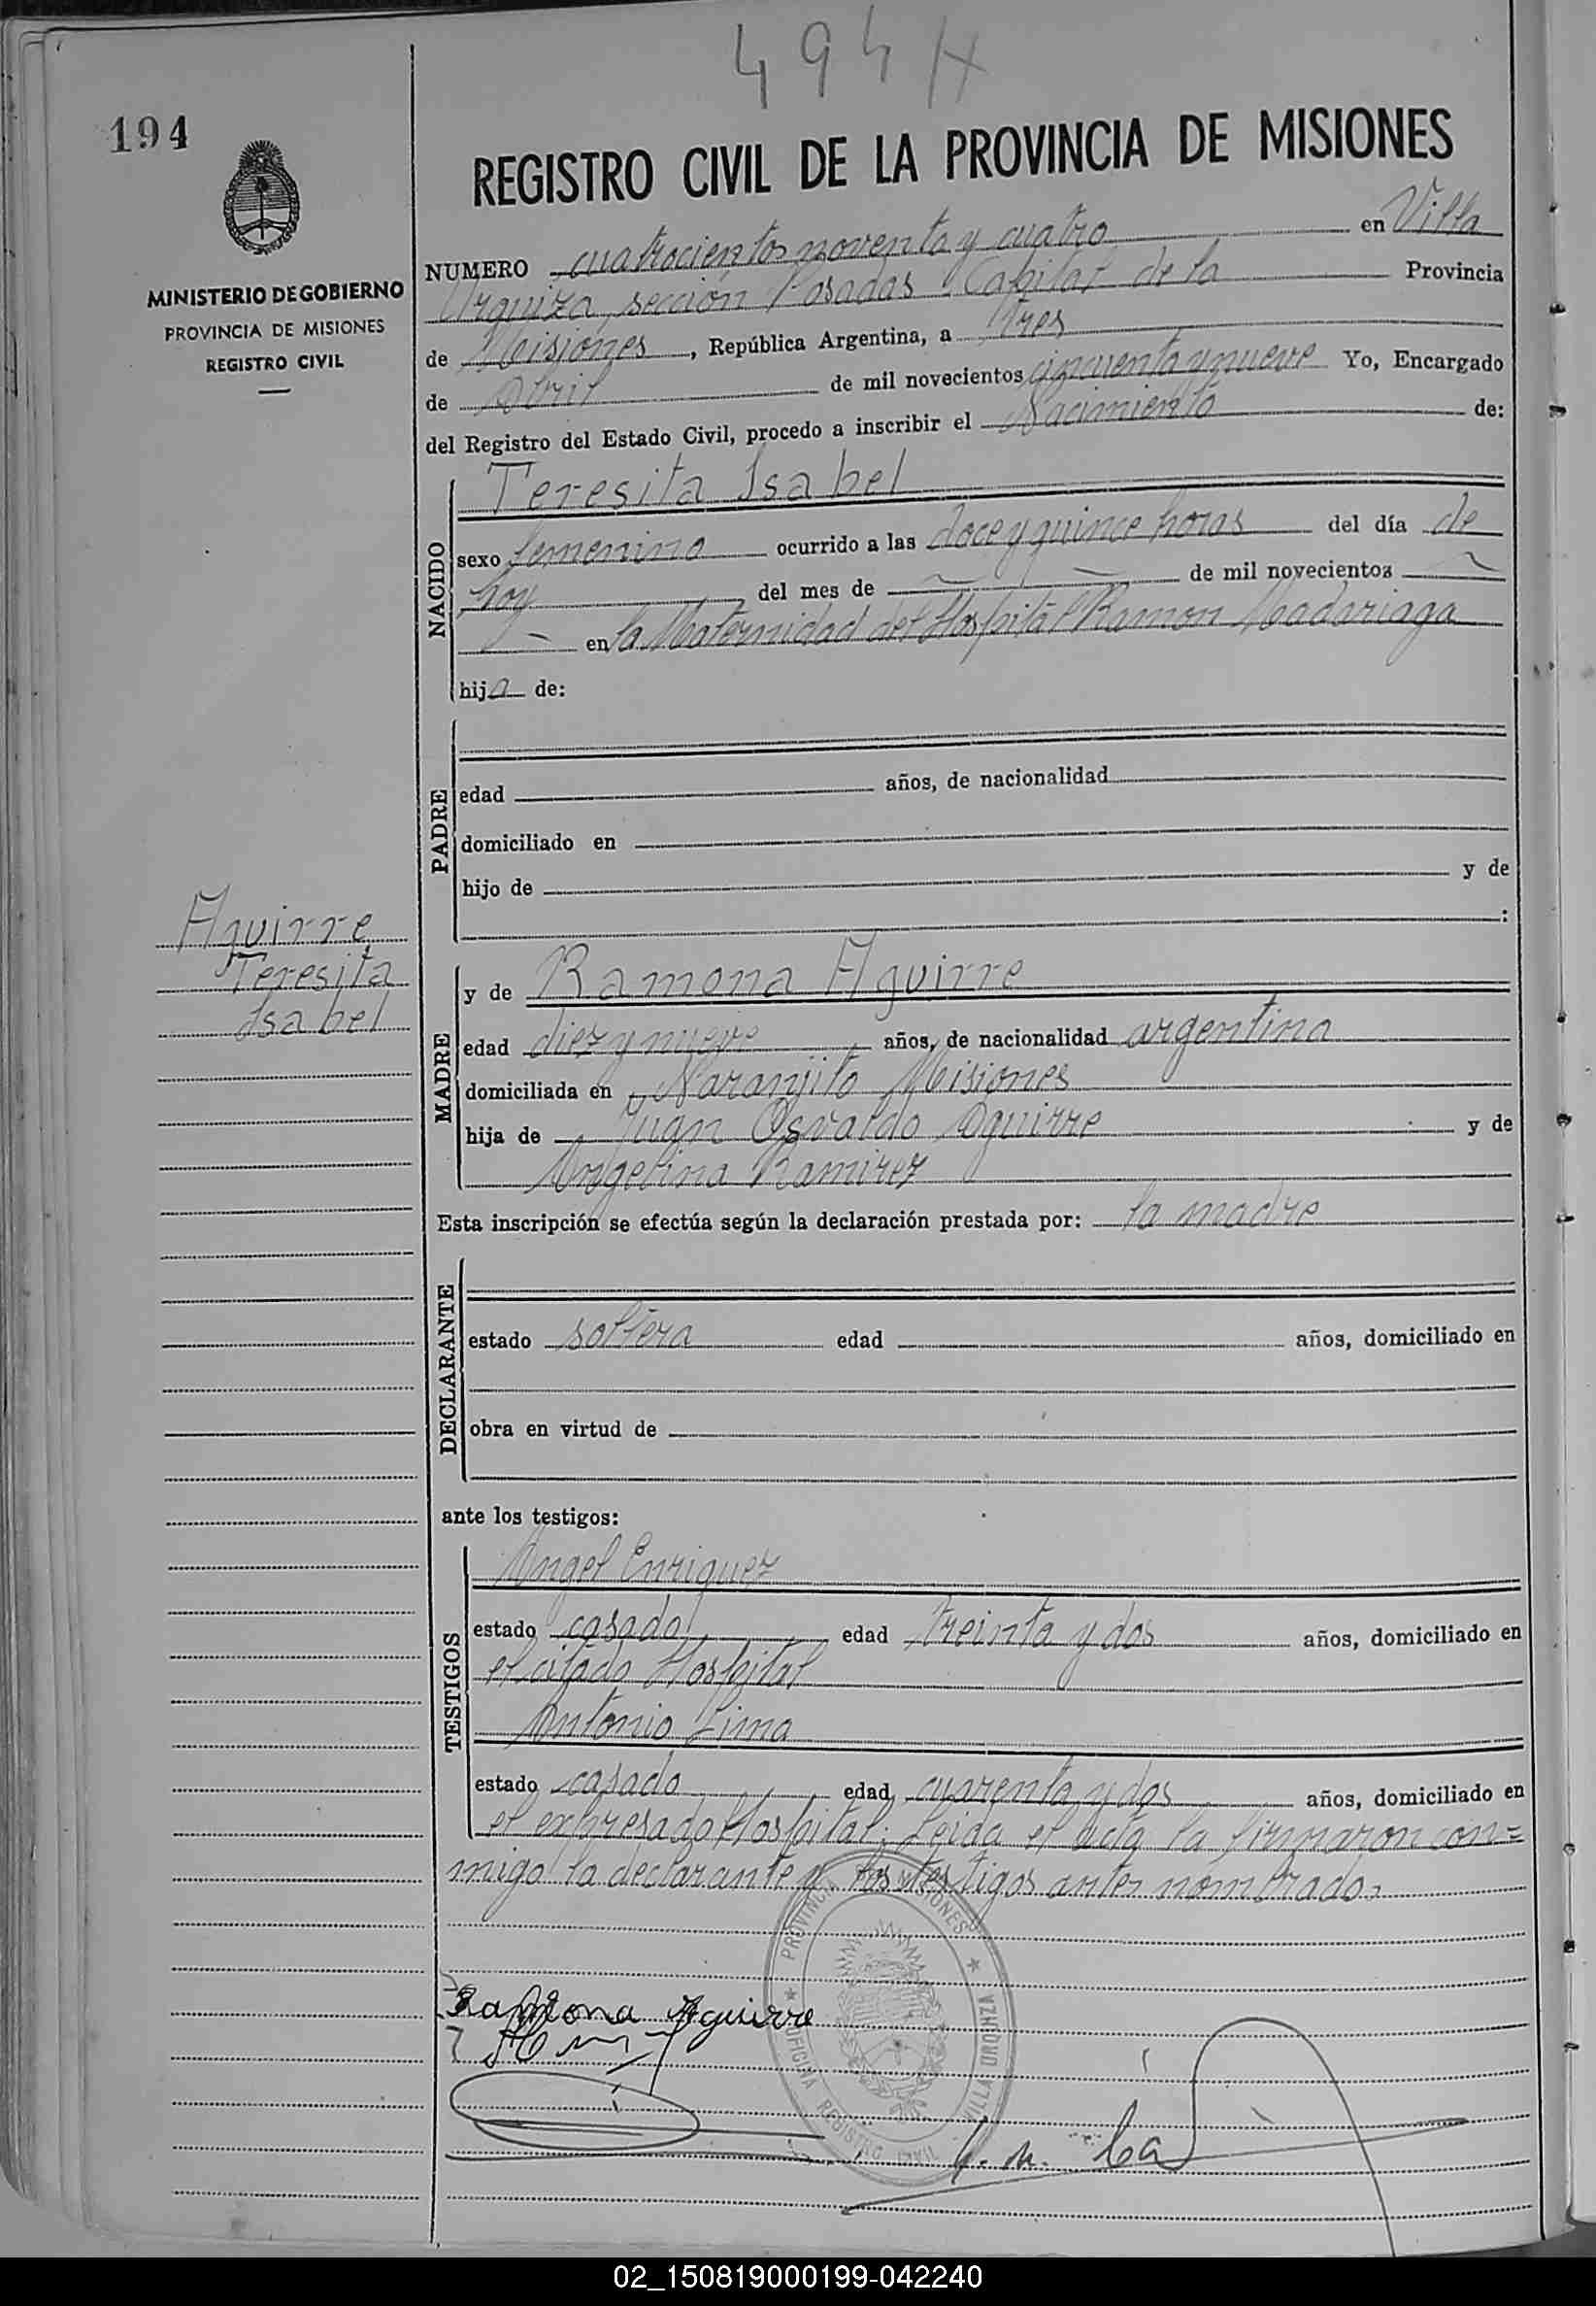 494 H
194
REGISTRO CIVIL DE LA PROVINCIA DE MISIONES
MINISTERIO DE GOBIERNO
PROVINCIA DE MISIONES
REGISTRO CIVIL
NUMERO cuatrocientos noventa y cuatro en Villa
Urquiza, sección Posadas Capital de la Provincia
de Misiones, República Argentina, a tres
de Abril de mil novecientos cincuenta y nueve Yo, Encargado
del Registro del Estado Civil, procedo a inscribir el Nacimiento de:
NACIDO
Teresita Isabel
sexo femenino ocurrido a las doce y quince horas del día de
hoy del mes de de mil novecientos
en la Maternidad del Hospital Ramon Madariaga
hija de:
PADRE
edad años, de nacionalidad
domiciliado en
hijo de y de
:
Aguirre
Teresita
Isabel
MADRE
y de Ramona Aguirre
edad diez y nueve años, de nacionalidad argentina
domiciliada en Naranjito Misiones
hija de Juan Osvaldo Aguirre y de
Angelina Ramirez
Esta inscripción se efectúa según la declaración prestada por: la madre
DECLARANTE
estado soltera edad años, domiciliado en
obra en virtud de
ante los testigos:
TESTIGOS
Angel Enriquez
estado casado edad treinta y dos años, domiciliado en
el citado Hospital
Antonio Lima
estado casado edad cuarenta y dos años, domiciliado en
el expresado Hospital; Leida el acta la firmaron con=
migo la declarante y los testigos antes nombrados
PROVINCIA MISIONES
OFICINA REGISTRO CIVIL VILLA URQUIZA
Ramona Aguirre
02_150819000199-042240